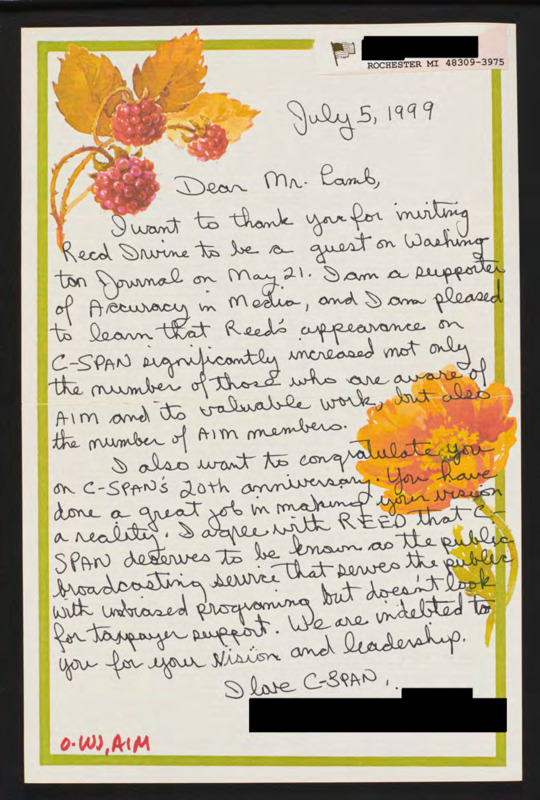 ROCHESTER MI 48309-3975
July 5, 1999
Dear Mr. Lamb,
I want to thank you for inviting
Reed Irvine to be a guest on Washing
ton Journal on May 21. I am a supporter
of Accuracy in Media, and I am pleased
to learn that Reed's appearance on
C-SPAN significantly increased not only
the number of those who are aware of
AIM and its valuable work, but also
the number of AIM members.
I also want to congratulate you
on C-SPAN's 20th anniversary. You have
done a great job in making your vision
a reality. I agree with REED that C-
SPAN deserves to be known as the public
broadcasting service that serves the public
with unbiased programing but doesn't look
for taxpayer support. We are indebted to
you for your vision and leadership.
I love C-SPAN,
O-WJ, AIM